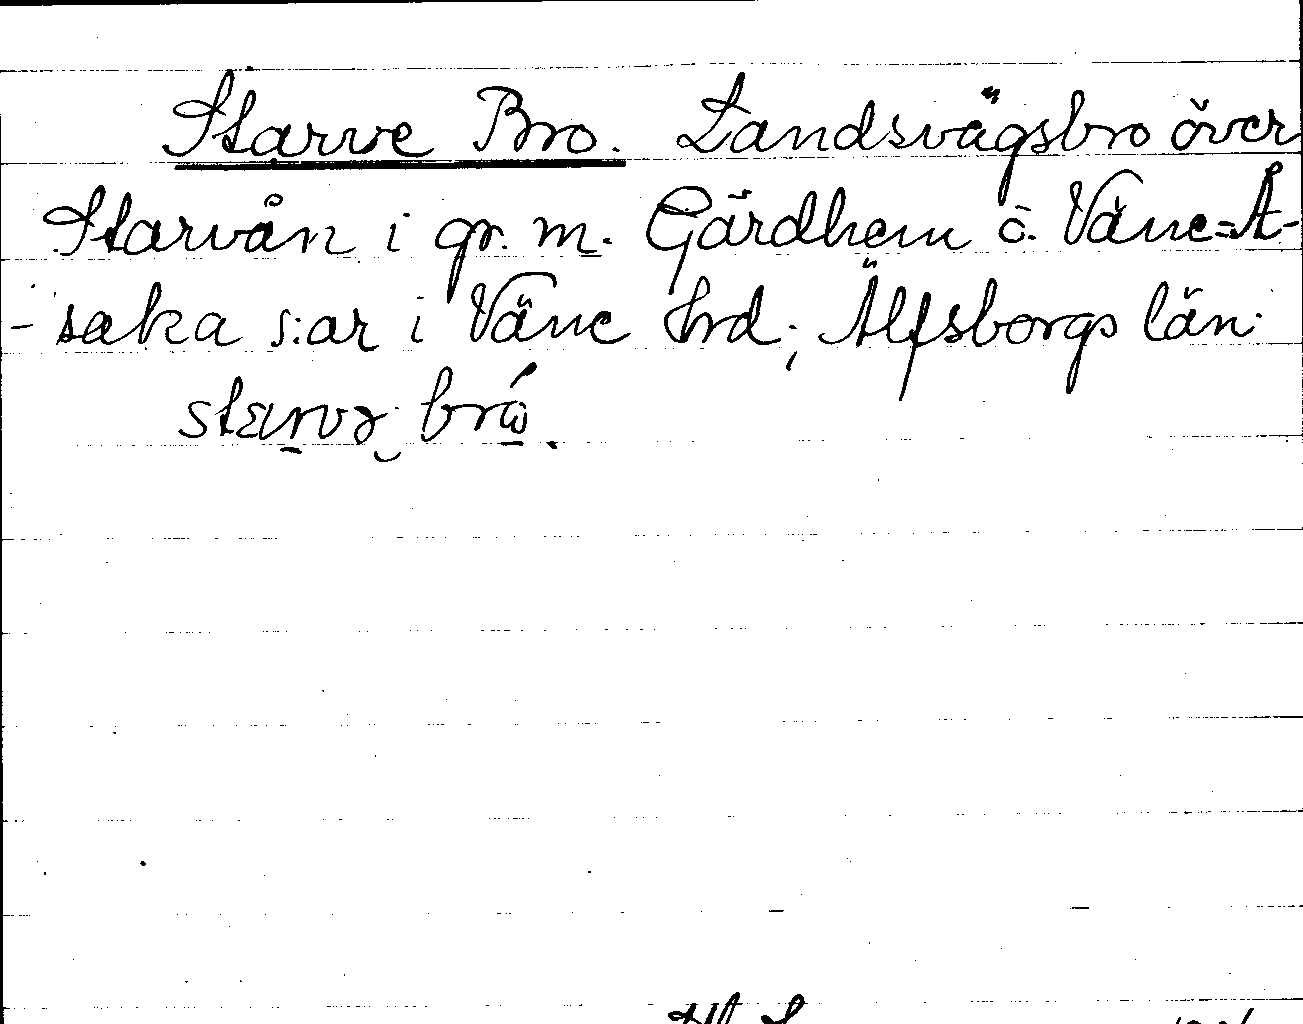 Starve Bro. Landsvägsbro över
Starvån i gr. m. Gärdhem o. Väne=Å-
-saka s:ar i Väne hrd; Älfsborgs län.